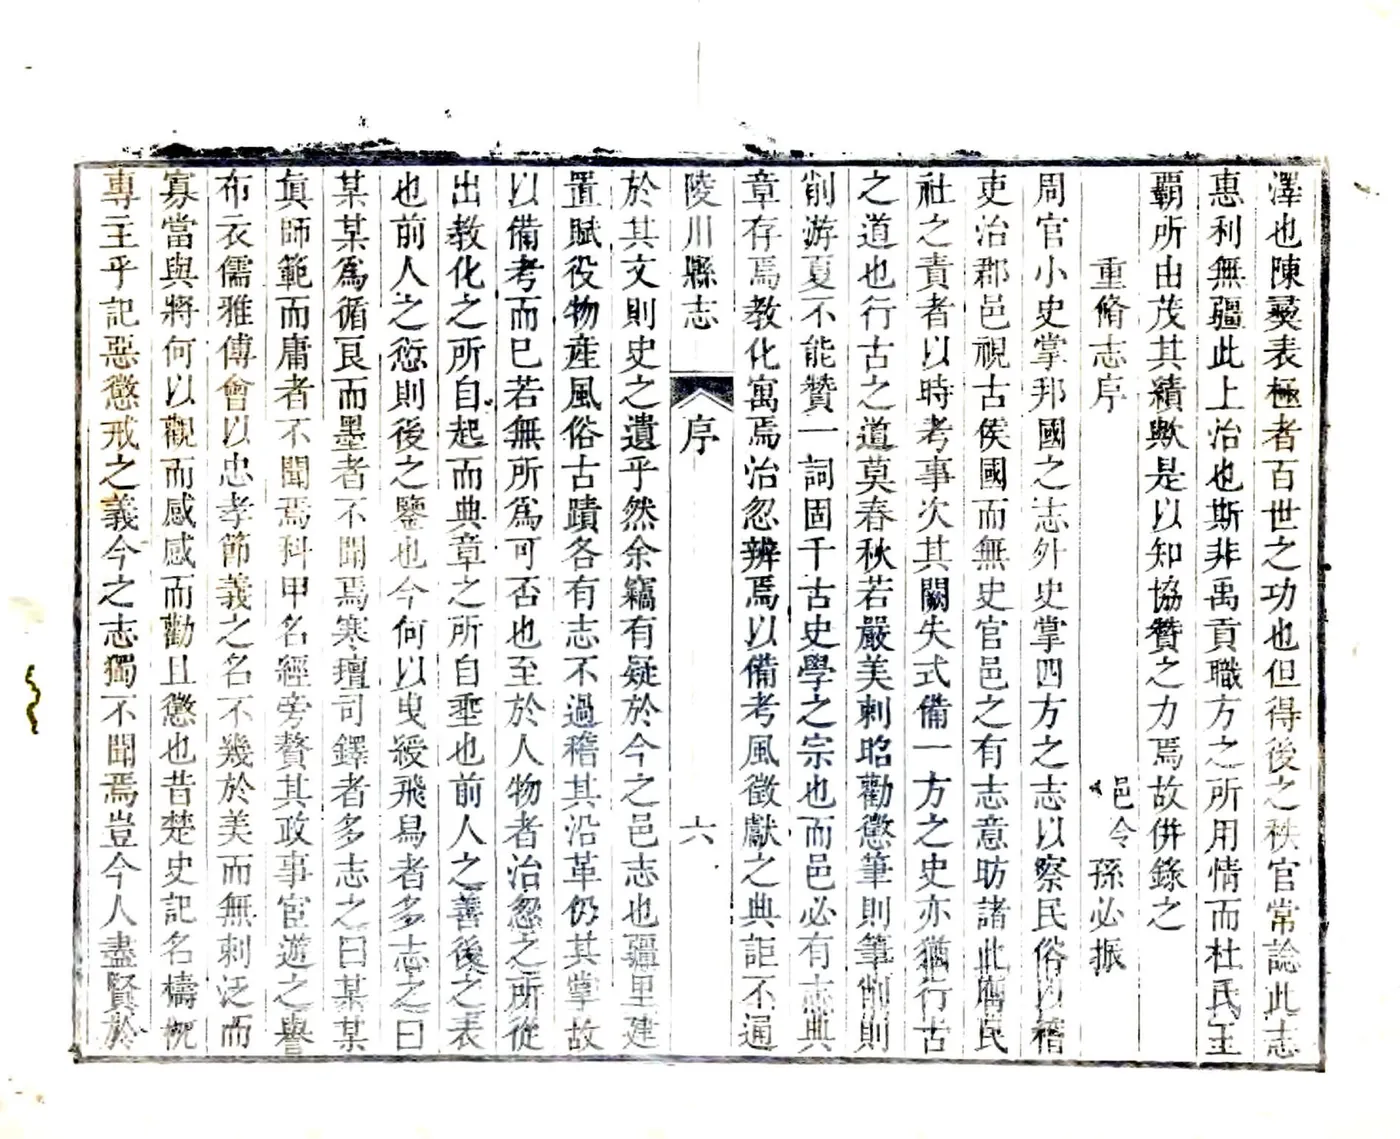 澤也陳彞表極者百世之功也但得後之秩官常諗此志
惠利無疆此上治也斯非禹貢職方之所用情而杜氏王
覇所由茂其績歟是以知協贊之力焉故併錄之
重脩志序
邑令孫必振
周官小史掌邦國之志外史掌四方之志以察民俗以稽
吏治郡邑視古侯國而無史官邑之有志意昉諸此膺民
社之責者以時考事次其闕失式備一方之史亦猶行古
之道也行古之道莫春秋若嚴美刺昭勸懲筆則筆削則
削游夏不能贊一詞固千古史學之宗也而邑必有志典
章存焉教化寓焉治忽辨焉以備考風徵獻之典詎不通
陵川縣志
序
六
於其文則史之遺乎然余竊有疑於今之邑志也疆里建
置賦役物產風俗古蹟各有志不過稽其沿革仍其掌故
以備考而已若無所爲可否也至於人物者治忽之所從
出教化之所自起而典章之所自埀也前人之善後之表
也前人之愆則後之鑒也今何以曳綬飛舄者多志之曰
某某爲循良而墨者不聞焉寒壇司鐸者多志之曰某某
眞師範而庸者不聞焉科甲名經旁贅其政事宦遊之譽
布衣儒雅傅會以忠孝節義之名不幾於美而無刺泛而
寡當與將何以觀而感感而勸且懲也昔楚史記名檮杌
專主乎記惡懲戒之義今之志獨不聞焉豈今人盡賢於